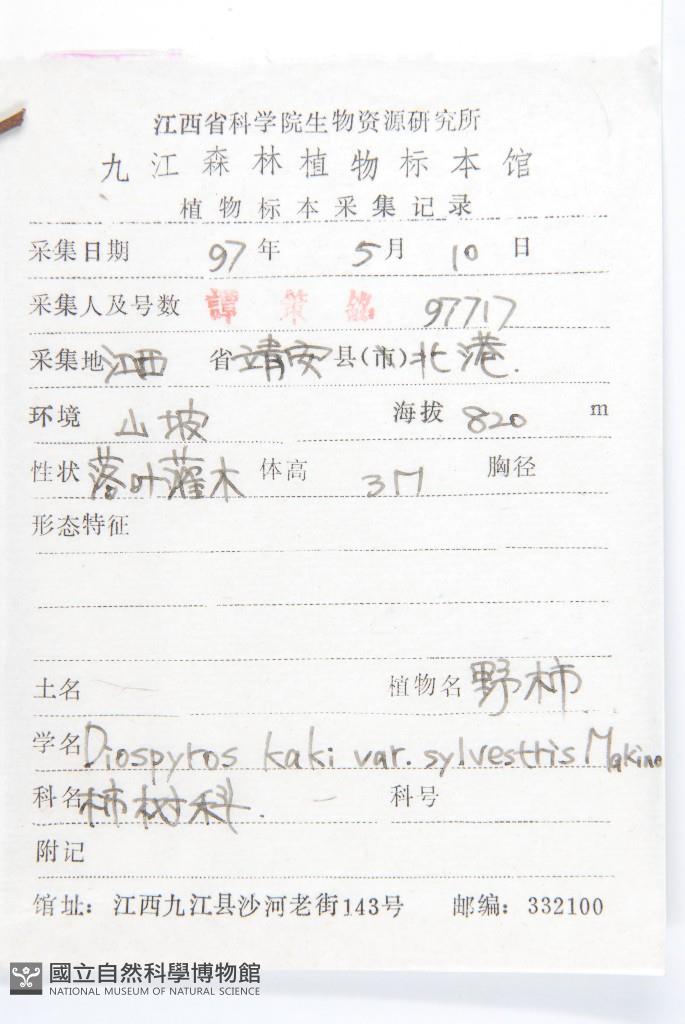 江西省科学院生物资源研究所
九江森林植物标本馆
植物标本采集记录
采集日期 97年 5月 10日
采集人及号数 譚策銘 97717
采集地 江西 省 靖安 县(市) 北港.
环境 山坡 海拔 820 m
性状 落叶灌木 体高 3M 胸径
形态特征
土名 植物名 野柿
学名 Diospyros kaki var. sylvestris Makino
科名 柿树科. 科号
附记
馆址：江西九江县沙河老街143号 邮编：332100
國立自然科學博物館
NATIONAL MUSEUM OF NATURAL SCIENCE